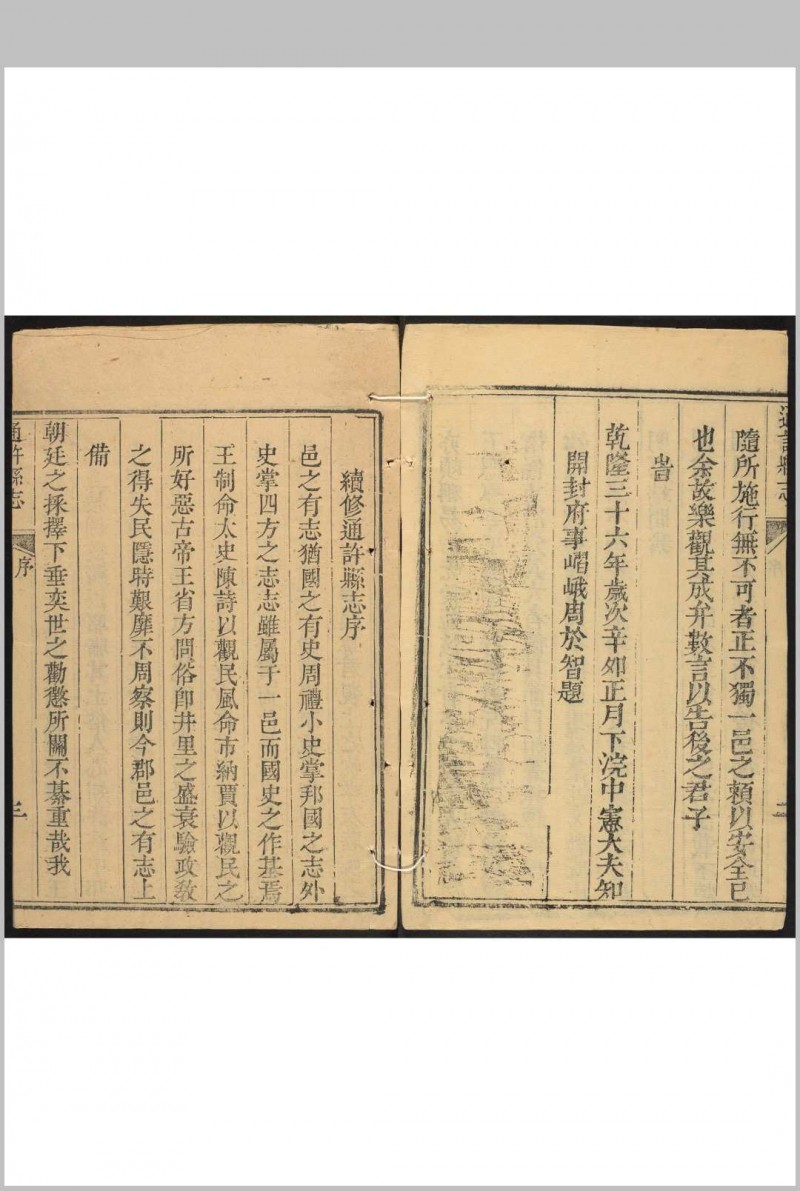 通許縣志
序
二
隨所施行無不可者正不獨一邑之賴以安全已
也余故樂觀其成弁數言以告後之君子
旹
乾隆三十六年歲次辛卯正月下浣中憲大夫知
開封府事嶍峨周於智題
續修通許縣志序
邑之有志猶國之有史周禮小史掌邦國之志外
史掌四方之志志雖屬于一邑而國史之作基焉
王制命太史陳詩以觀民風命市納賈以觀民之
所好惡古帝王省方問俗卽井里之盛衰驗政敎
之得失民隱時艱靡不周察則今郡邑之有志上
備
朝廷之採擇下垂奕世之勸懲所關不綦重哉我
通許縣志
序
三